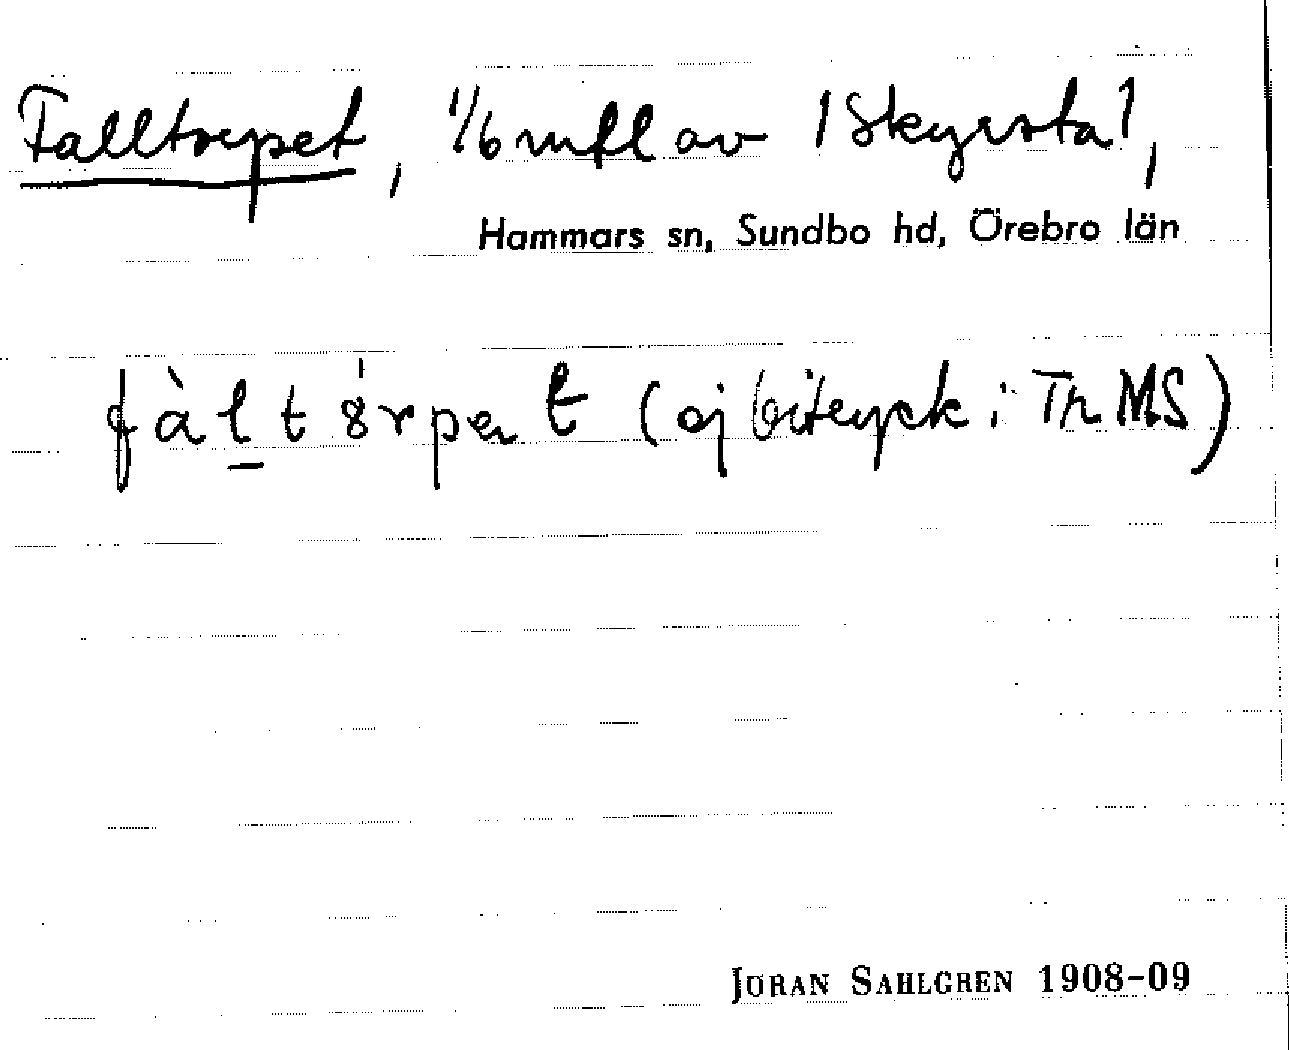 Falltorpet, 1/6 mil av 1 Skyrsta 1,
Hammars sn, Sundbo hd, Örebro län
(ej bitryck i Th MS)
JÖRAN SAHLGREN 1908-09